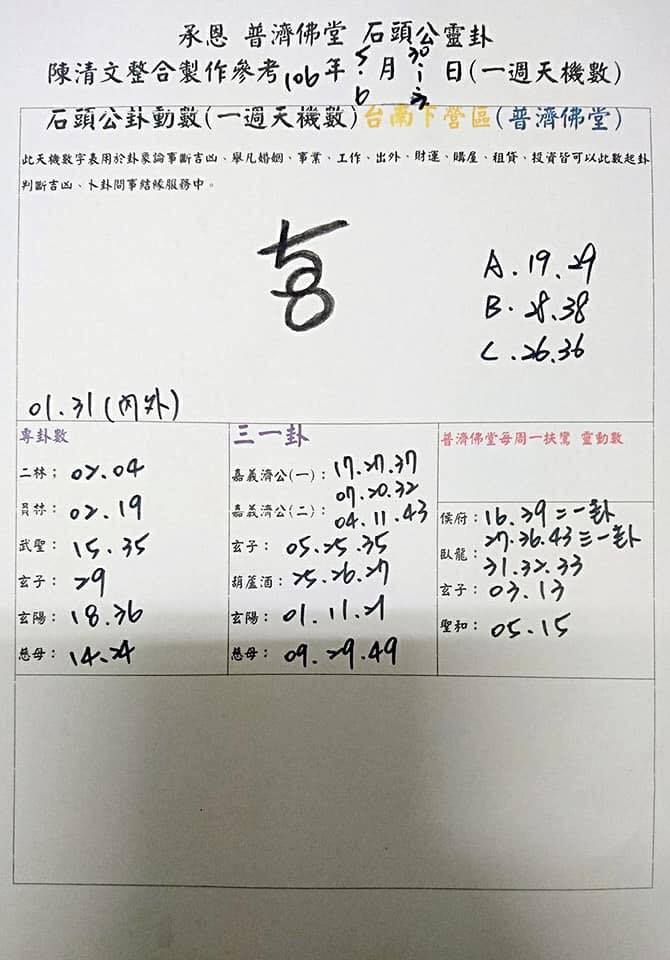 承恩 普濟佛堂 石頭公靈卦
陳清文整合製作參考106年5.6月30-3日(一週天機數)
石頭公卦動數(一週天機數)台南下營區(普濟佛堂)
此天機數字表用於卦象論事斷吉凶、舉凡婚姻、事業、工作、出外、財運、購屋、租貸、投資皆可以此數起卦
判斷吉凶、卜卦問事結緣服務中。
A.19.29
B.28.38
C.26.36
01.31(內外)
專卦數
二林; 02.04
員林: 02.19
武聖: 15.35
玄子: 29
玄陽: 18.36
慈母: 14.24
三一卦
嘉義濟公(一): 17.27.37
07.20.32
嘉義濟公(二): 04.11.43
玄子: 05.25.35
葫蘆酒: 25.26.27
玄陽: 01.11.21
慈母: 09.29.49
普濟佛堂每周一扶鸞 靈動數
侯府: 16.39二一卦
27.36.43三一卦
臥龍: 31.32.33
玄子: 03.13
聖和: 05.15